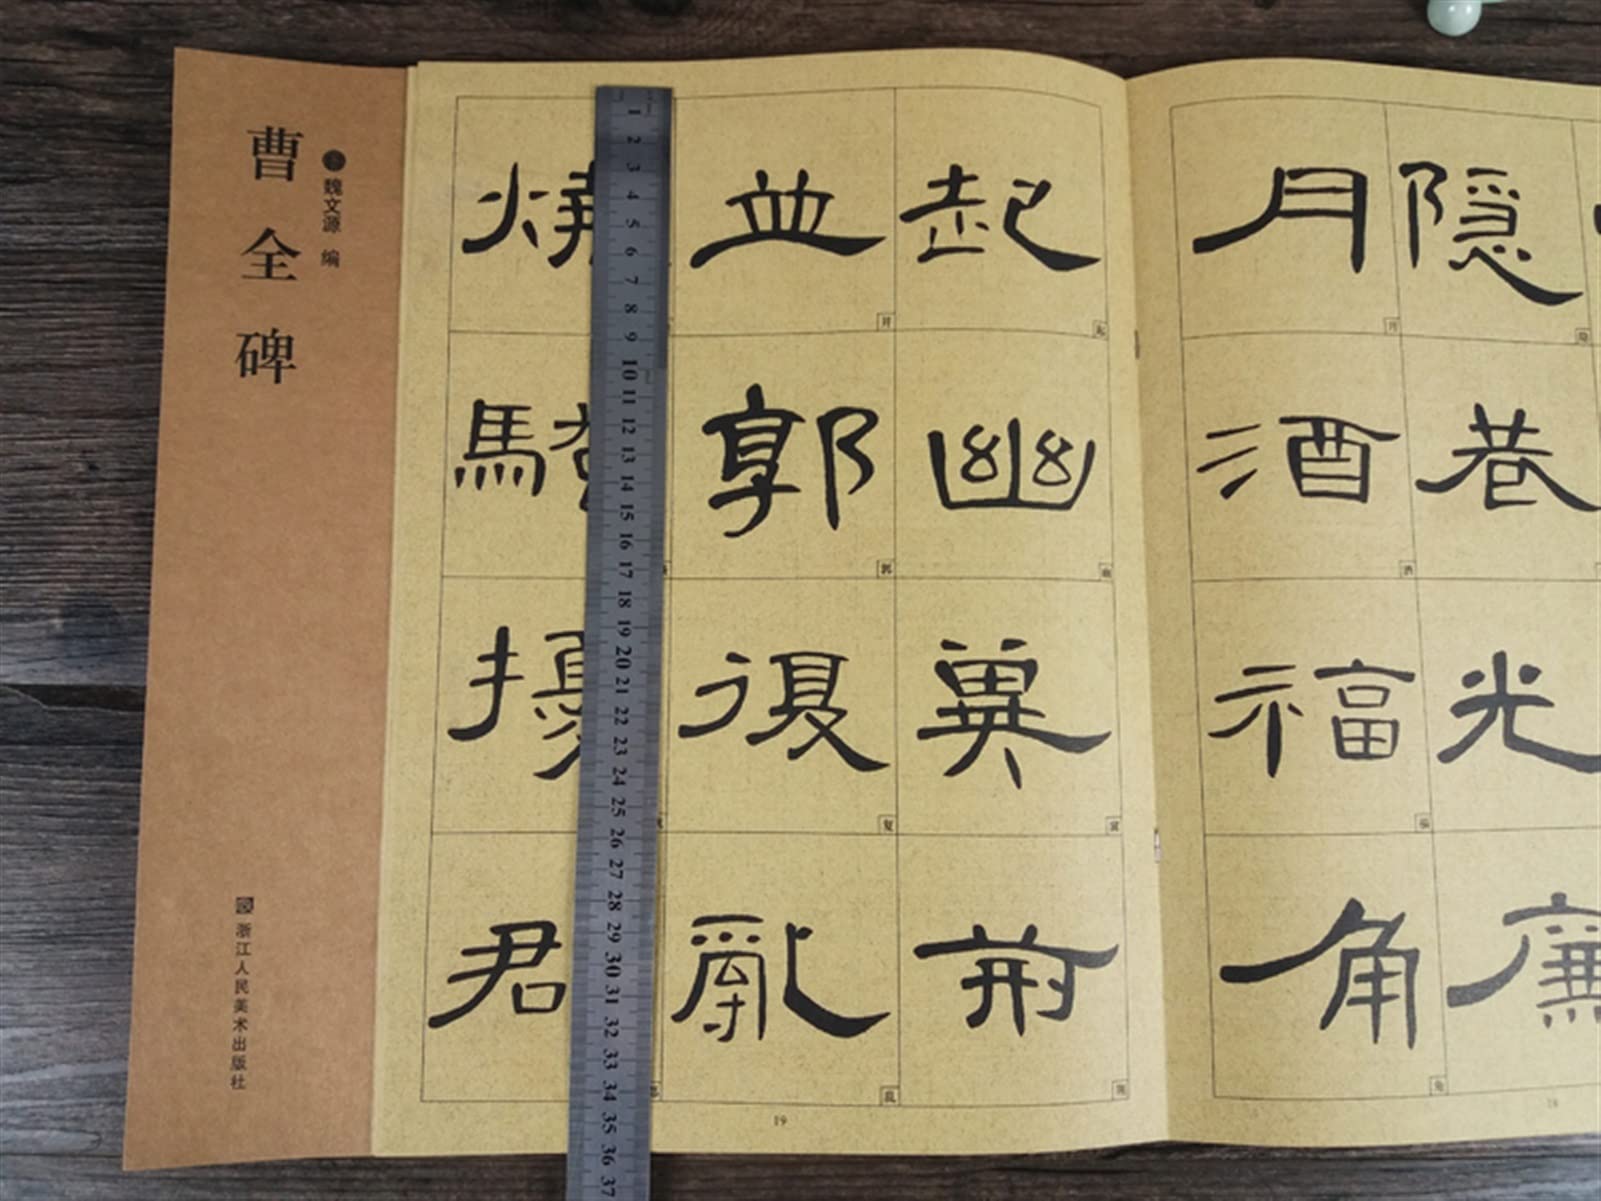 曹全碑
魏文源 编
浙江人民美术出版社
隐巷光廉
月酒福角
起幽冀荊
並郭復亂
燒騷擾君
月
酒
福
角
幽
郭
复
乱
1 2 3 4 5 6 7 8 9 10 11 12 13 14 15 16 17 18 19 20 21 22 23 24 25 26 27 28 29 30 31 32 33 34 35 36 37
19
18